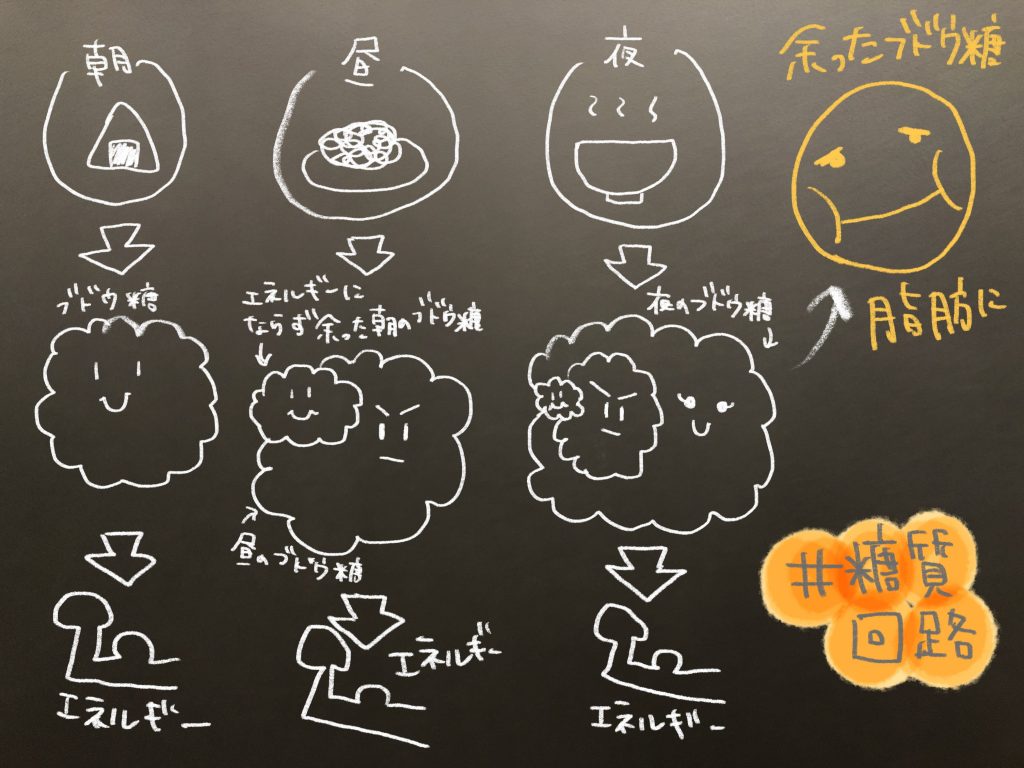 朝
ブドウ糖
エネルギー
昼
エネルギーに
ならず余った朝のブドウ糖
昼のブドウ糖
エネルギー
夜
夜のブドウ糖
エネルギー
余ったブドウ糖
脂肪に
#糖質
回路